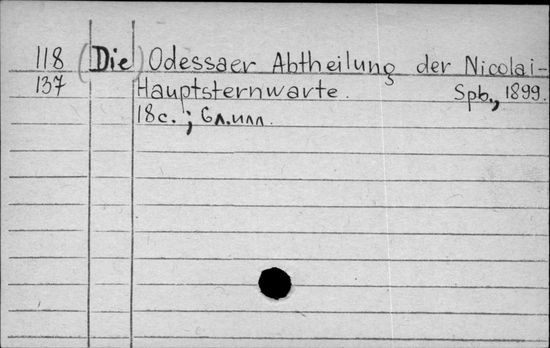 118 (Die) Odessaer Abtheilung der Nicolai-
137 Hauptsternwarte. Spb., 1899.
18с.; 6л.илл.